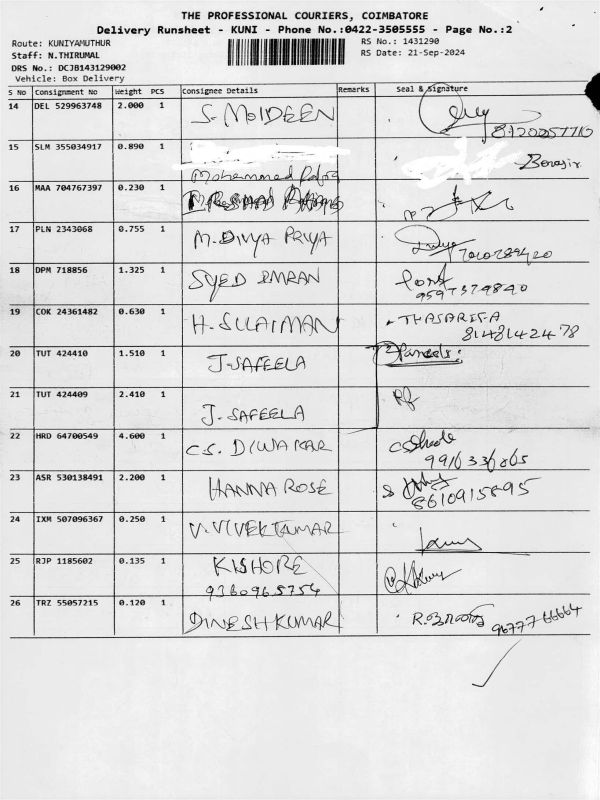 THE PROFESSIONAL COURIERS, COIMBATORE
Delivery Runsheet - KUNI - Phone No.:0422-3505555 - Page No.:2
Route: KUNIYAMUTHUR RS No.: 1431290
Staff: N.THIRUMAL RS Date: 21-Sep-2024
DRS No.: DCJB143129002
Vehicle: Box Delivery
S No Consignment No Weight PCS Consignee Details Remarks Seal & Signature
14 DEL 529963748 2.000 1 S. MOIDEEN 8720057710
15 SLM 355034917 0.890 1 Benasir
Mohammed
16 MAA 704767397 0.230 1
17 PLN 2343068 0.755 1 M. DIVYA PRIYA Divya 7010789420
18 DPM 718856 1.325 1 SYED IMRAN 9597379840
19 COK 24361482 0.630 1 H. SULAIMAN THASARIFA
8148142478
20 TUT 424410 1.510 1 J. SAFEELA 2 Parcels:
21 TUT 424409 2.410 1 J. SAFEELA
22 HRD 64700549 4.600 1 C.S. DIWAKAR 9916336865
23 ASR 530138491 2.200 1 HANNA ROSE 8610915895
24 IXM 507096367 0.250 1 V. VIVEK KUMAR
25 RJP 1185602 0.135 1 KISHORE
9360965754
26 TRZ 55057215 0.120 1 DINESH KUMAR 9677766664